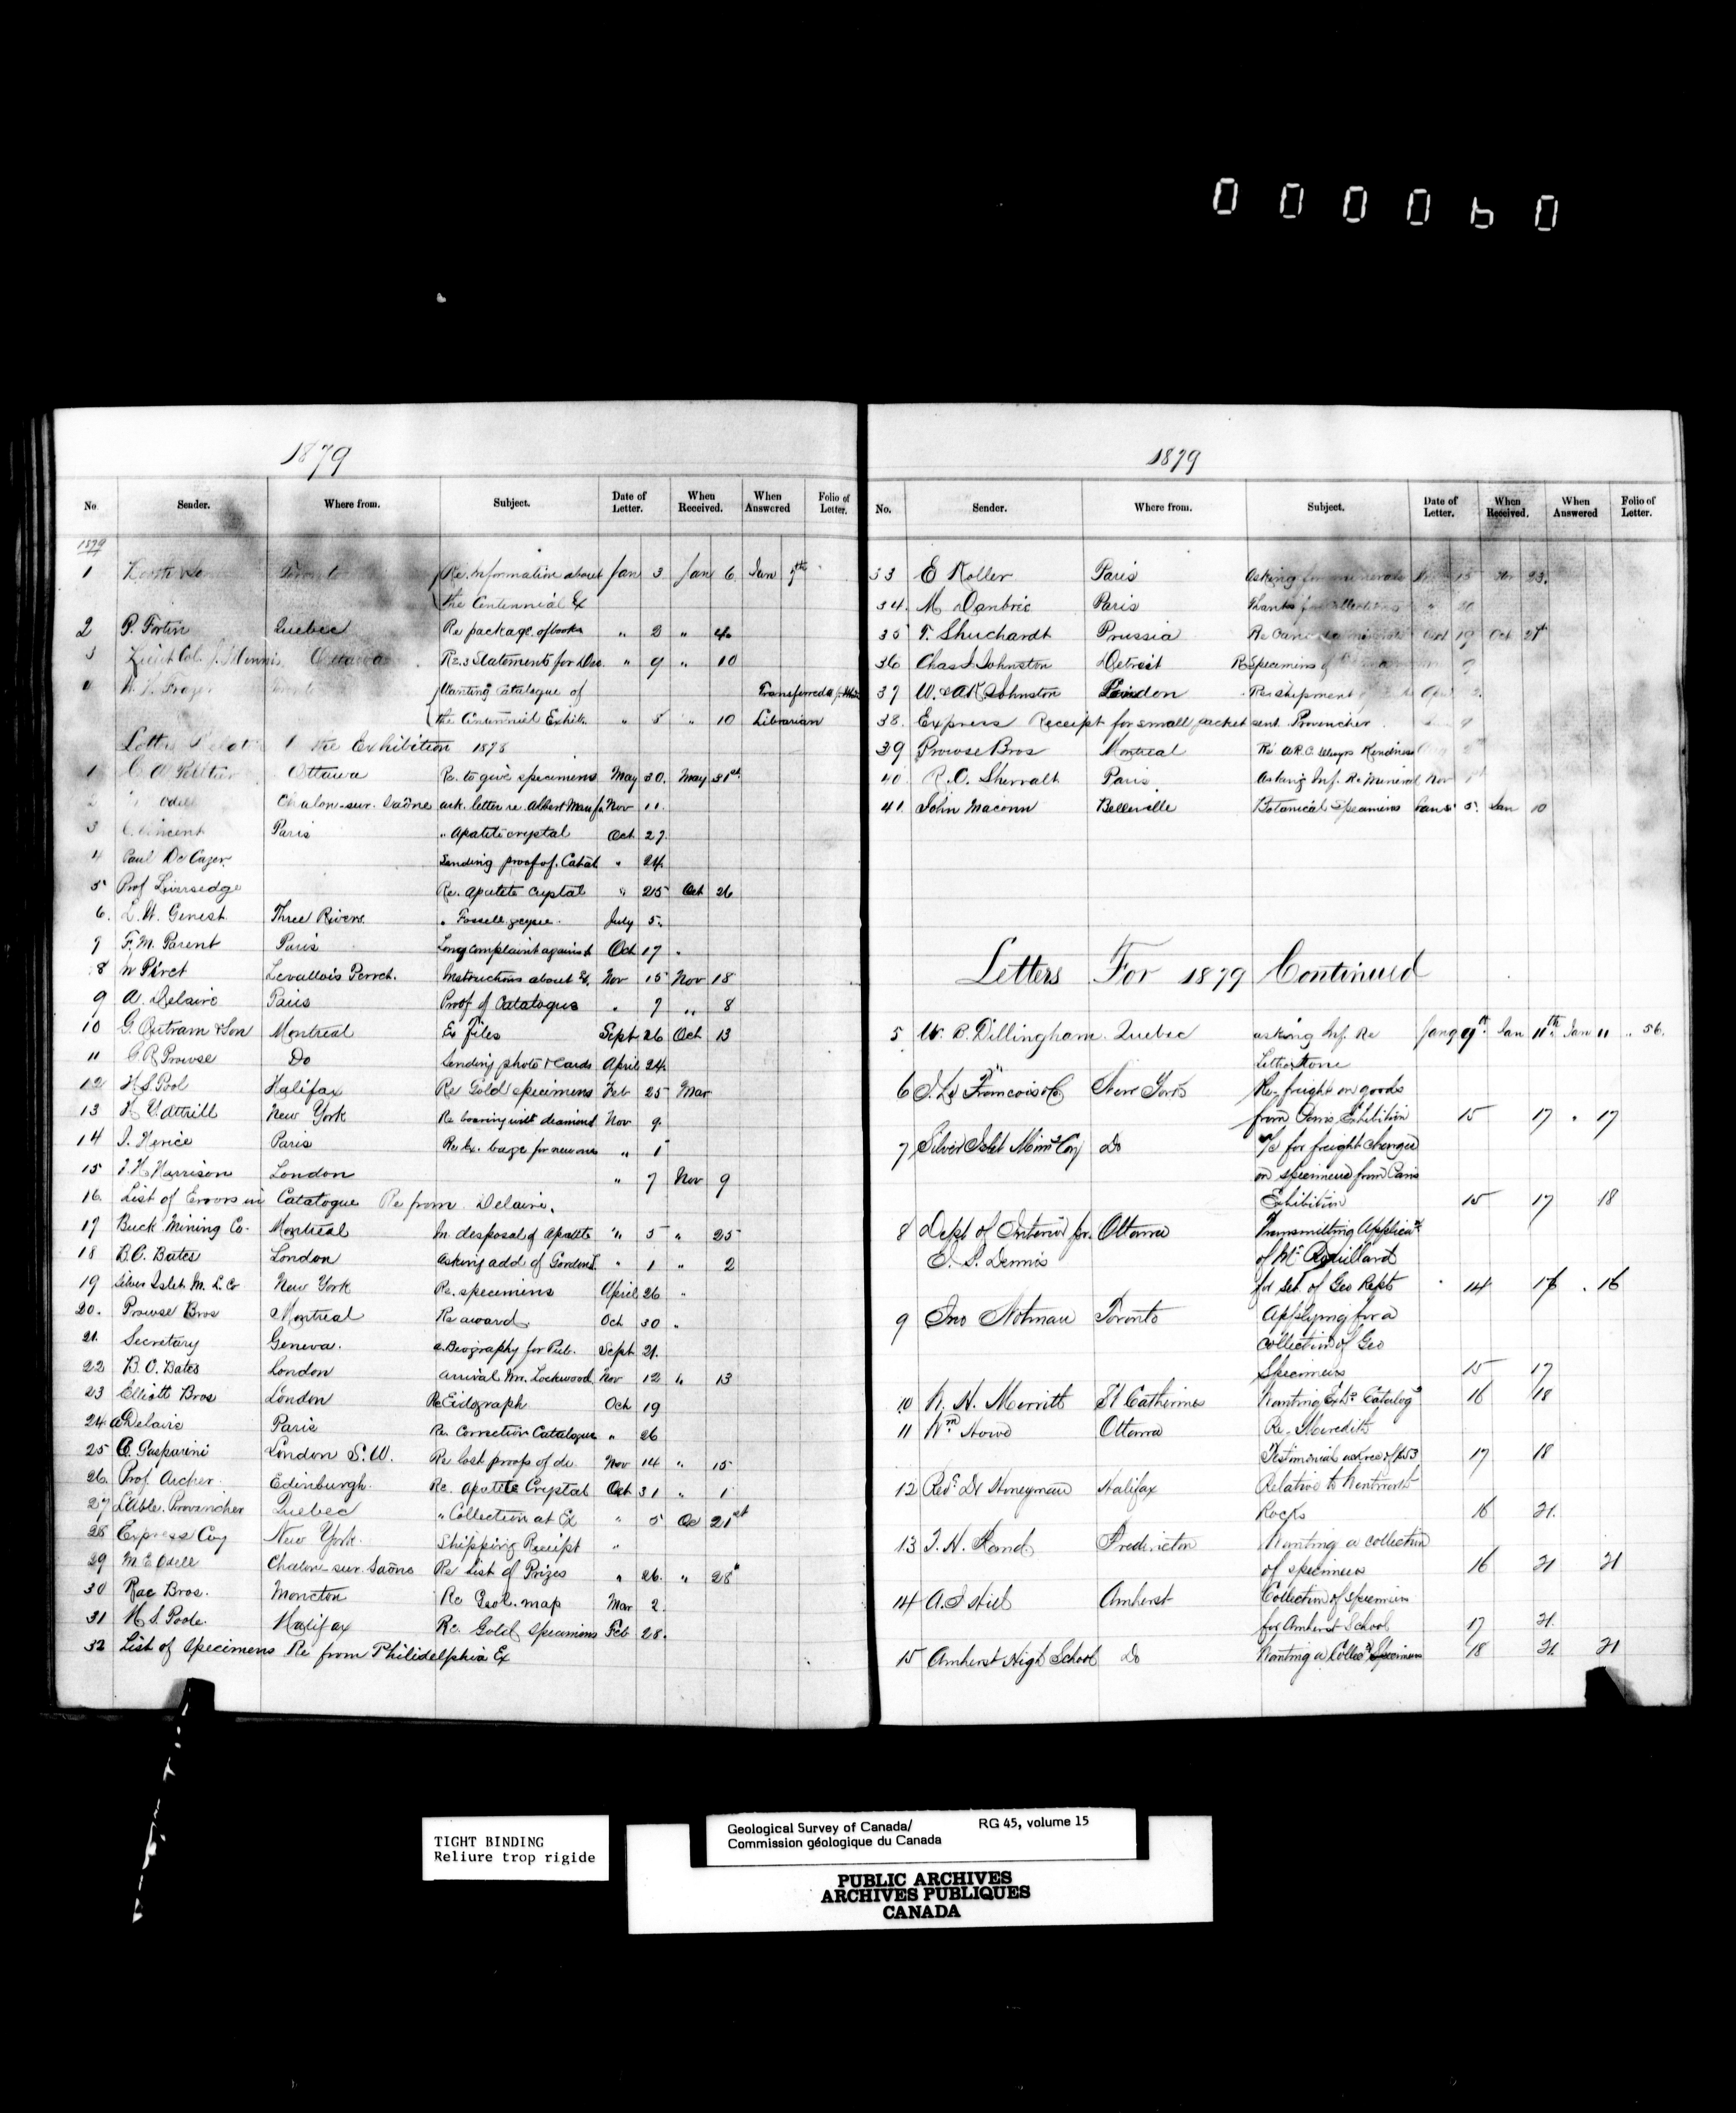 000060
1879
No. Sender. Where from. Subject. Date of Letter. When Received. When Answered Folio of Letter.
1879
1 Toronto Re. Information about Jan 3 Jan 6 Jan 7th
the Centennial Ex
2 P. Fortin Quebec Re package of books " 3 " 4
3 Lieut Col. Ottawa Re. 3 Statements for Dec. " 9 " 10
4 Wanting Catalogue of Transferred to
the Centennial Exhib. " 5 " 10 Librarian
Letters Relative to the Exhibition 1878
1 C A Pelltier Ottawa Re. to give specimens May 30. May 31st
2 Odell Chalon-sur-Saône ack. letter re. Albert Nov 11.
3 Vincent Paris " Apatite crystal Oct 27.
4 Paul De Cazes Sending proof of Catal " 24.
5 Prof Liversedge Re. Apatite Crystal " 25 Oct 26
6. L. U. Genest Three Rivers. July 5.
7 F. M. Parent Paris Long complaint against Oct 17 "
8 Levallois Perret. Instructions about Ex. Nov 15 Nov 18
9 A. Delaire Paris Proof of Catalogue " 7 " 8
10 G. Outram & Son Montreal Ex files Sept 26 Oct 13
11 G. R. Prowse Do Sending photo & Cards April 24.
12 H. S. Pool Halifax Re Gold specimens Feb 25 Mar
13 H. Y. Attrill New York Re boaring with diamond Nov 9.
14 Paris Re Ex. " 1
15 J. H. Harrison London " 7 Nov 9
16. List of Errors in Catalogue Re from Delaire.
17 Buck Mining Co. Montreal disposal of Apatite " 5 " 25
18 B. O. Bates London Asking add of " 1 " 2
19 Silver Islet M. L. Co New York Re. specimens April 26 "
20. Prowse Bros Montreal Re award. Oct 30 "
21. Secretary Geneva. Biography for Pub. Sept 21.
22 B. O. Bates London arrival Mr. Lockwood Nov 12 " 13
23 Elliott Bros London Re Eidograph Oct 19
24 A Delaire Paris Re. Correction Catalogue " 26
25 C. Gasparini London S. W. Re last proofs of do. Nov 14 " 15
26. Prof. Archer Edinburgh. Re. Apatite Crystal Oct 31 " 1
27 L'Abbe. Provancher Quebec " Collection at Ex " 5 Oc 21st
28 Express Coy New York. Shipping Receipt "
29 M. E. Odell Chalon-sur-Saône Re List of Prizes " 26. " 28
30 Rae Bros. Moncton Re Geol. map Mar 2.
31 H. S. Poole Halifax Re. Gold Specimens Feb 28.
32 List of Specimens Re from Philidelphia Ex
1879
No. Sender. Where from. Subject. Date of Letter. When Received. When Answered Folio of Letter.
33 E Koller Paris Asking for minerals 15 23.
34. M Paris Thanks for collections " 20
35 T. Shuchardt Prussia Oct 19 Oct 21
36 Chas I. Johnston Detroit Re Specimens of 9
37 W. & A K Johnston London Re shipment
38. Express Receipt for small packet sent Provencher
39 Prowse Bros Montreal Re A R. C. Selwyns Kindness
40. R. O. Paris. Asking Inf. Re Mineral Nov
41. John Maconn Belleville Botanical Specimens Jan 5. Jan 10
Letters For 1879 Continued
5 W. B. Dillingham. Quebec asking Inf. Re Jany 9th. Jan 11th Jan 11 . 56.
Litho Stone
6 Francois & Co. New York Re. freight on goods
from Paris Exhibition 15 17 " 17
7 Silver Islet Mining Coy Do a/c for freight charges
on specimens from Paris
Exhibition 15 17 18
8 Dept of Interior pr. Ottawa Transmitting Applicat
Dennis of
for Set. of Geo Repts " 14 16 . 16
9 Jno Notman Toronto Applying for a
collection of Geo
Specimens 15 17
10 N. H. Merritt St Catherines Wanting Exbn Catalog 16 18
11 Wm Howe Ottawa Re. Meredith
Testimonial 17 18
12 Revd Dr Honeyman Halifax Relative to Wentworth
Rocks 16 21.
13 Rand. Fredericton Wanting a collection
of specimens 16 21 21
14 Amherst Collection of Specimens
for Amherst School 17 21.
15 Amherst High School Do Wanting a Collec Specimens 18 21. 21
TIGHT BINDING
Reliure trop rigide
Geological Survey of Canada/ RG 45, volume 15
Commission géologique du Canada
PUBLIC ARCHIVES
ARCHIVES PUBLIQUES
CANADA